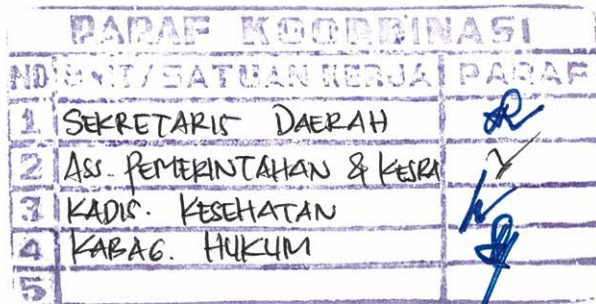 PARAF KOORDINASI
NO UNIT/SATUAN KERJA PARAF
1 SEKRETARIS DAERAH
2 ASS. PEMERINTAHAN & KESRA
3 KADIS. KESEHATAN
4 KABAG. HUKUM
5